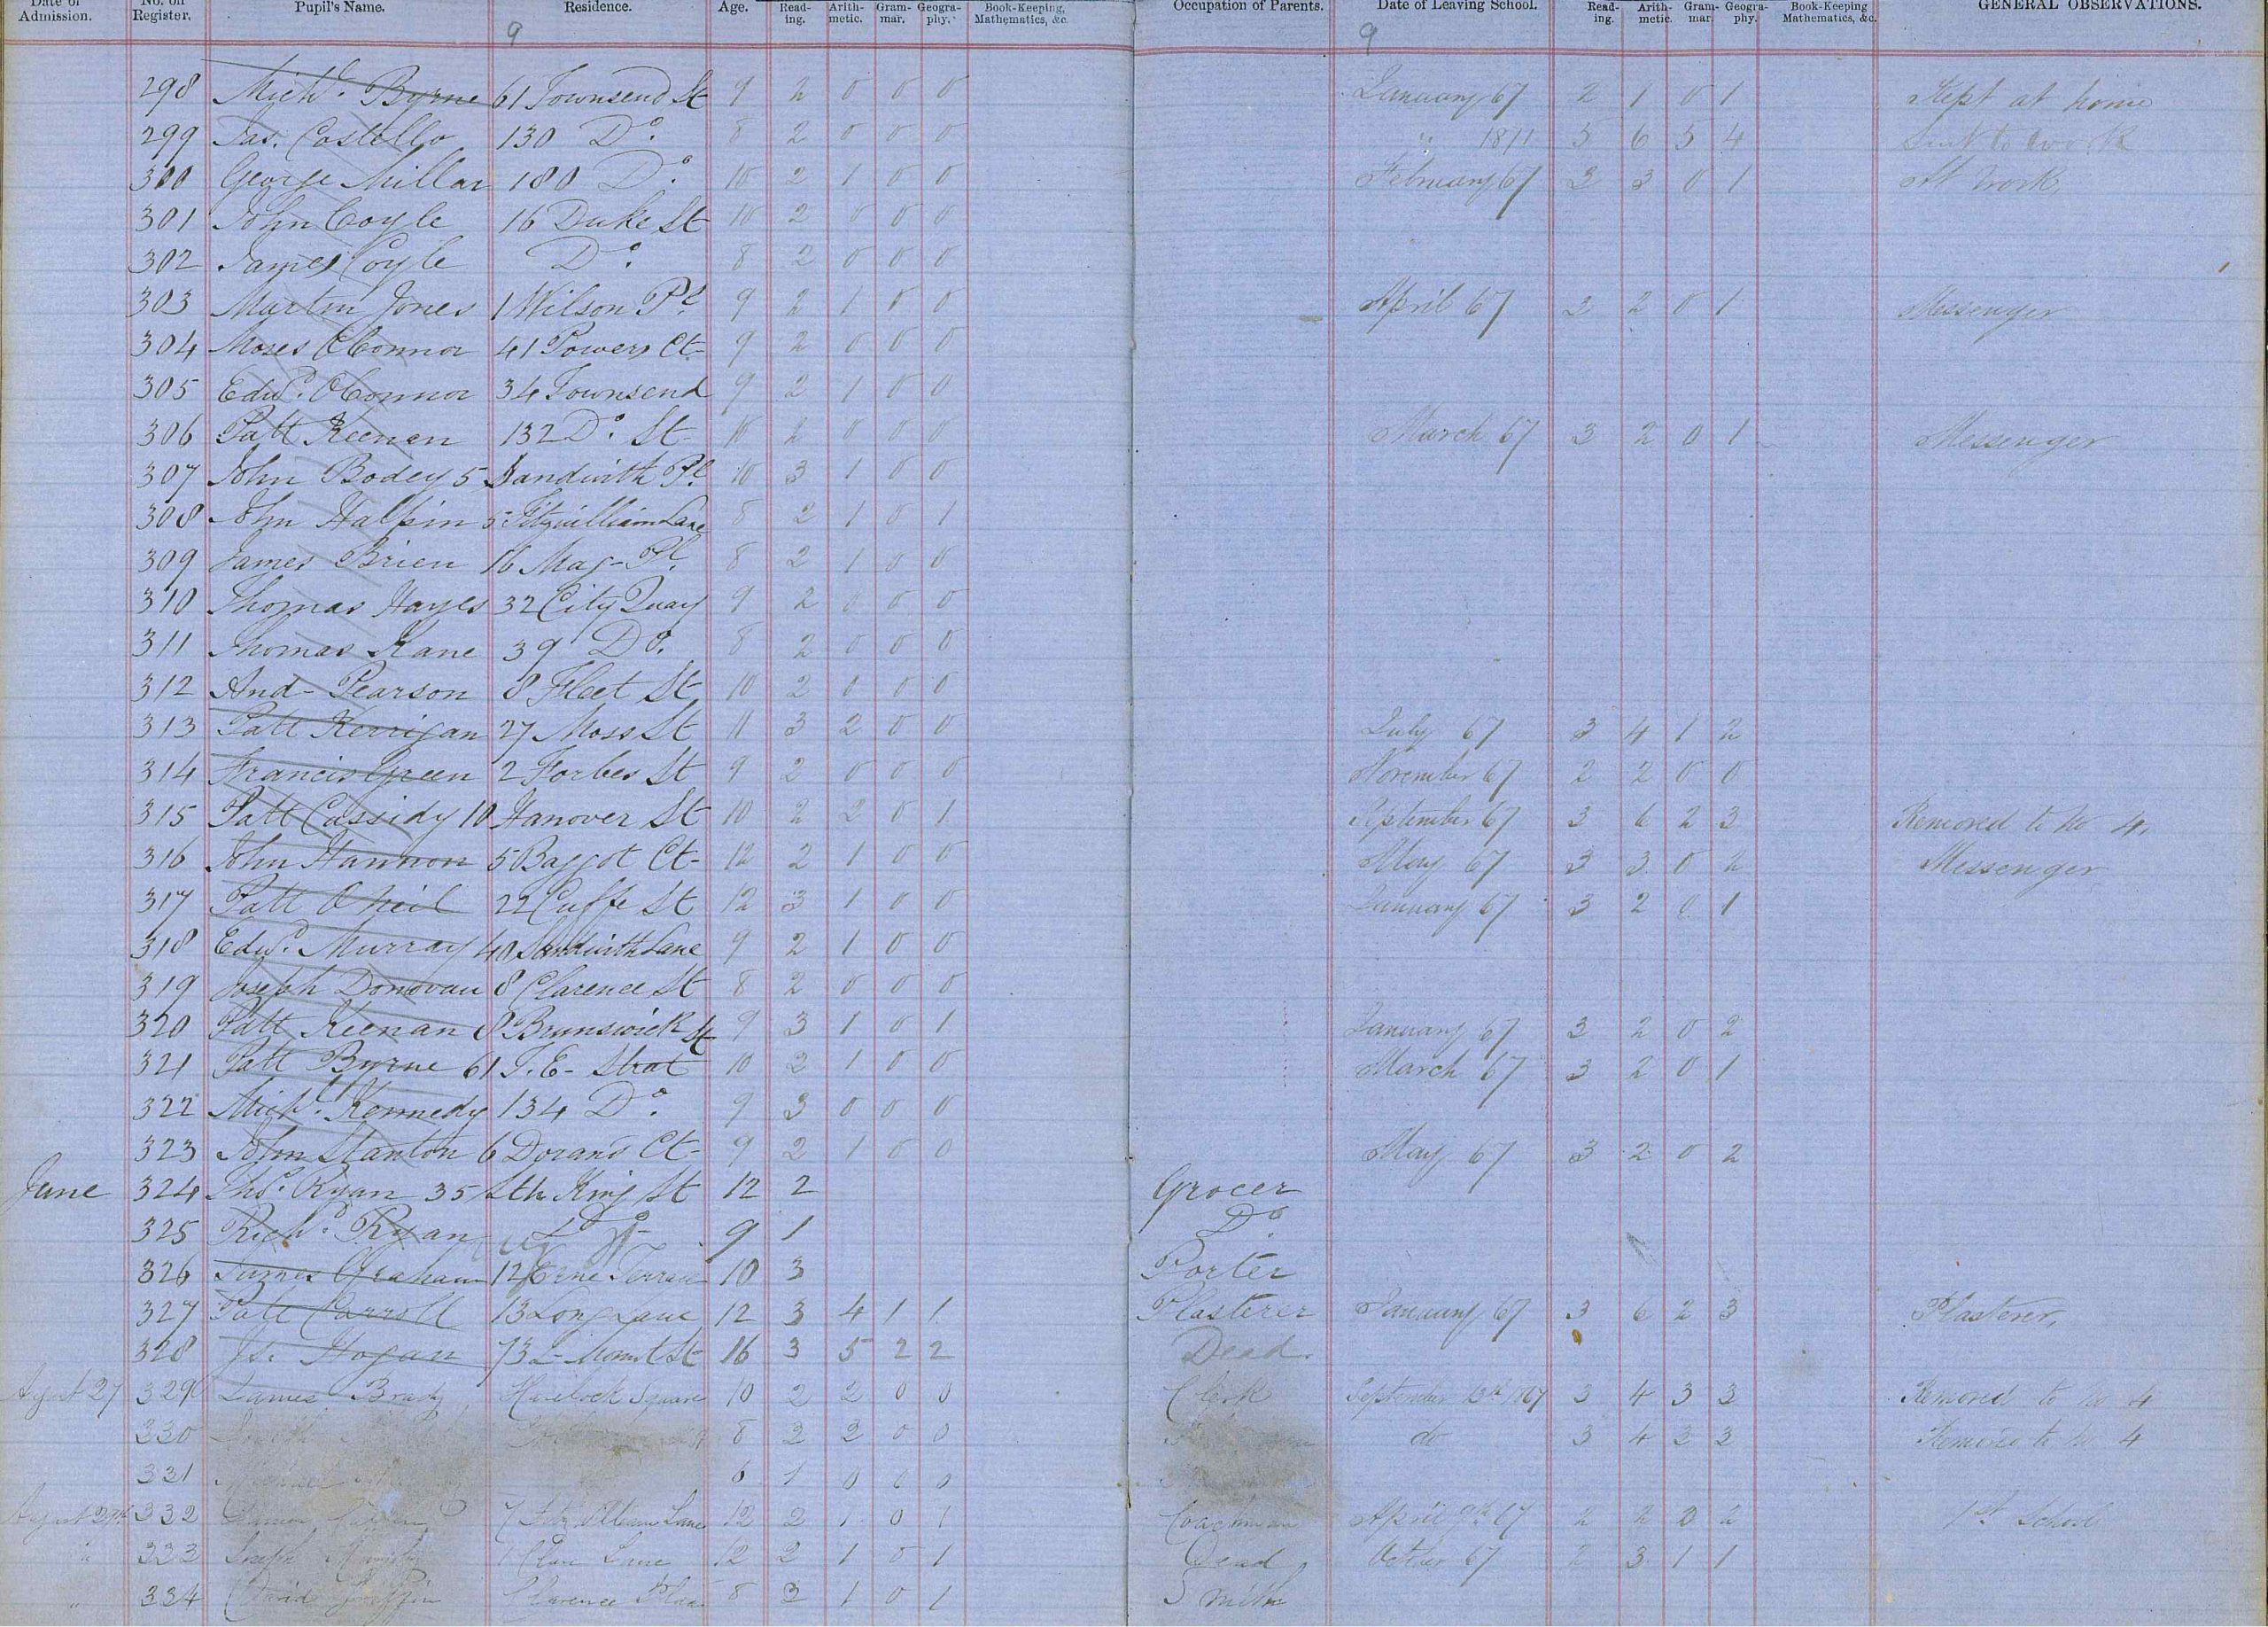 Date of Admission. No. on Register. Pupil's Name. Residence. Age. Read-ing. Arith-metic. Gram-mar. Geogra-phy. Book-Keeping, Mathematics, &c. Occupation of Parents. Date of Leaving School. Read-ing. Arith-metic. Gram-mar. Geogra-phy. Book-Keeping Mathematics, &c. GENERAL OBSERVATIONS.
9 9
298 Michl. Byrne 61 Townsend St 9 2 0 0 0 January 67 2 1 0 1 Kept at home
299 Jas. Costello 130 Do. 8 2 0 0 0 " 1871 5 6 5 4 Sent to work
300 George Millar 180 Do. 10 2 1 0 0 February 67 3 3 0 1 At work
301 John Coyle 16 Duke St 10 2 0 0 0
302 James Coyle Do. 8 2 0 0 0
303 Martin Jones 1 Wilson Pl. 9 2 1 0 0 April 67 3 2 0 1 Messenger
304 Moses O'Connor 41 Powers Ct- 9 2 0 0 0
305 Edwd. O'Connor 34 Townsend 9 2 1 0 0
306 Patt Keenan 132 Do. St- 10 2 0 0 0 March 67 3 2 0 1 Messenger
307 John Bodey 5 Sandwith Pl 10 3 1 0 0
308 John Halpin 5 Fitzwilliam Lane 8 2 1 0 1
309 James Brien 16 Mag- Pl. 8 2 1 0 0
310 Thomas Hayes 32 City Quay 9 2 0 0 0
311 Thomas Kane 39 Do. 8 2 0 0 0
312 And- Pearson 8 Fleet St 10 2 0 0 0
313 Patt Kerrigan 27 Moss St 11 3 2 0 0 July 67 3 4 1 2
314 Francis Green 2 Forbes St 9 2 0 0 0 November 67 2 2 0 0
315 Patt Cassidy 10 Hanover St 10 2 2 0 1 September 67 3 6 2 3 Removed to No 4.
316 John Hannon 5 Baggot Ct- 12 2 1 0 0 May 67 3 3 0 2 Messenger
317 Patt O Neil 22 Cuffe St 12 3 1 0 0 January 67 3 2 0 1
318 Edwd. Murray 40 Sandwith Lane 9 2 1 0 0
319 Joseph Donovan 8 Clarence St 8 2 0 0 0
320 Patt Keenan 8 Brunswick St 9 3 1 0 1 January 67 3 2 0 2
321 Patt Byrne 61 T. E- Strat 10 2 1 0 0 March 67 3 2 0 1
322 Michl. Kennedy 134 Do. 9 3 0 0 0
323 John Stanton 6 Dorans Ct- 9 2 1 0 0 May 67 3 2 0 2
June 324 Ths. Ryan 35 Sth King St 12 2 Grocer
325 Richd. Ryan 9 1 Do
326 James Graham 12 Erne Terrace 10 3 Porter
327 Patt Carroll 13 Long Lane 12 3 4 1 1 Plasterer January 67 3 6 2 3 Plasterer,
328 Js. Hogan 73 L- Mount St 16 3 5 2 2 Dead.
Agust 27 329 James Brady Havelock Square 10 2 2 0 0 Clerk September 13th 1867 3 4 3 3 Removed to No 4
330 8 2 2 0 0 do 3 4 3 3 Removed to No 4
331 Michael 6 1 0 0 0
August 29th 332 7 Fitz William Lane 12 2 1 0 1 Coachman April 9th 67 2 2 0 2 1st School
" 333 Joseph 1 Clare Lane 12 2 1 0 1 Dead October 67 2 3 1 1
" 334 David Griffin Clarence Place 8 3 1 0 1 Smith